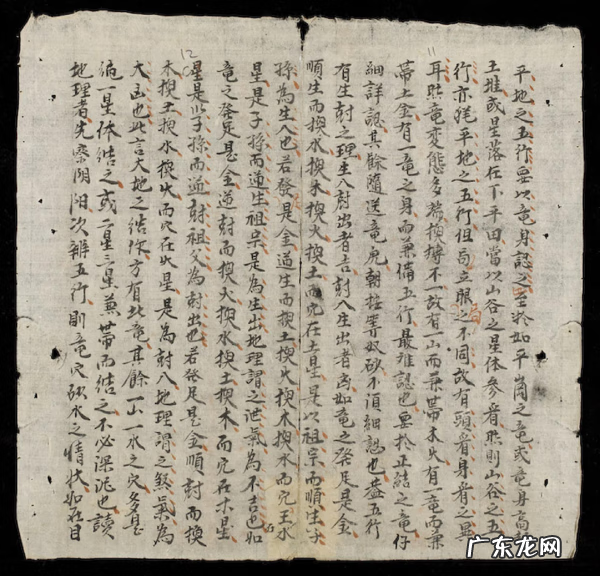 平地之五行要以竜身認之至於如平崗之竜或竜身高
王堆或星落在下平田當以山谷之星体参看照則山谷之五
行亦猶平地之五行但高立眠之不同故有頭看身看之異
局
耳然竜変態多端換摶不一故有一山而兼帶木火有一竜而兼
帶土金有一竜之身而兼備五行最难認也要於正結之竜仔
細詳認其餘隨送竜虎朝拱等奴砂不須細認也盖五行
有生尅之理生入尅出者吉尅入生出者凶如竜之發足是金
順生而換水換木換火換土而穴在土星是以祖宗而順生子
孫為生入也若發是金逆生而換土換火換木換水而穴王水
星是子孫而逆生祖宗是為生出地理謂之泄氣為不吉也如
竜之發足是金逆尅而換火換水換土換木而穴在木星
星是以子孫而逆尅祖父為尅出也若發足是金順尅而換
木換土換水換火而穴在火星是為尅入地理謂之煞氣為
大凶也此言大地之結作方有此竜其餘一山一水之穴多是
一星体結之或二星三星兼帶而結之不必深泥也讀
地理者先察阴阳次辨五行則竜穴砂水之情状如在目
11
12
广东龙网